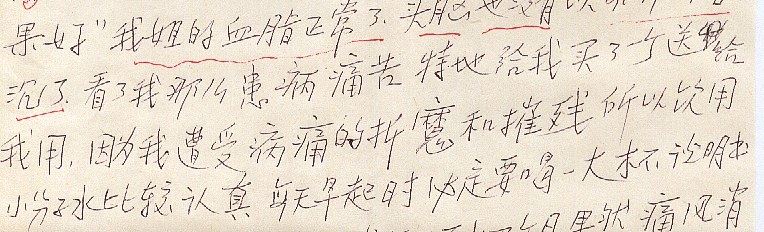 果好”我姐的血脂正常了.头脑也没有以
沉了.看了我那么患病痛苦特地给我买了个送给
我用,因为我遭受病痛的折魔和摧残所以饮用
小分子水比较认真每天早起时必定要喝一大杯不说明书
个月果然痛风消